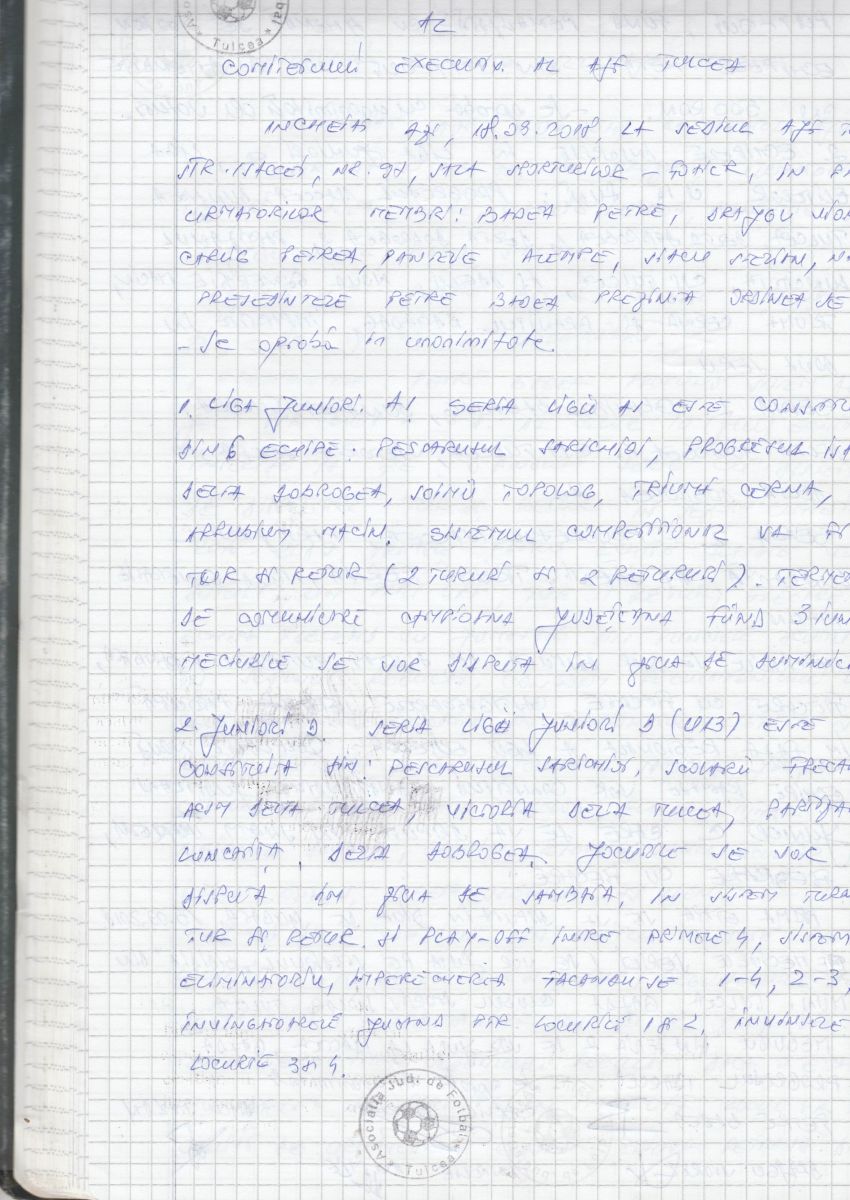 Tulcea
AL
COMITETULUI EXECUTIV AL AJF TULCEA
INCHEIAT AZI, 18.09.2018, LA SEDIUL AJF T
STR. ISACCEI, NR. 91, SALA SPORTURILOR - FOAIER, IN
URMATORILOR MEMBRI: BADEA PETRE,
PETREA, PANTELIE STELIAN,
PRESEDINTELE PETRE BADEA PREZINTA ORDINEA DE
- Se aprobă în unanimitate.
1. LIGA JUNIORI A1 SERIA LIGII A1 ESTE CONSTITU
DIN 6 ECHIPE: PESCARUSUL SARICHIOI, PROGRESUL ISA
DELTA DOBROGEA, SOIMII TOPOLOG, TRIUMF CERNA,
ARRUBIUM MACIN. SISTEMUL COMPETITIONAL VA FI
TUR SI RETUR (2 TURURI SI 2 RETURURI). TERMEN
DE COMUNICARE CAMPIOANA JUDEȚEANA FIIND 3 IUN
MECIURILE SE VOR DISPUTA IN ZIUA DE DUMINICA
2. JUNIORI D. SERIA LIGII JUNIORI D (U13) ESTE
CONSTITUITA DIN: PESCARUSUL SARICHIOI, SCOLARII
ACSM DELTA TULCEA, VICTORIA DELTA TULCEA, PARTIZAN
LUNCAVIȚA, DELTA DOBROGEA. JOCURILE SE VOR
DISPUTA IN ZIUA DE SAMBATA, IN SISTEM
TUR SI RETUR SI PLAY-OFF INTRE PRIMELE 4, SISTEM
ELIMINATORIU, IMPERECHEREA FACANDU-SE 1-4, 2-3,
INVINGATOARELE JUCAND PTR LOCURILE 1 SI 2, INVINSELE
LOCURILE 3 SI 4.
Asociatia Jud. de Fotbal
Tulcea